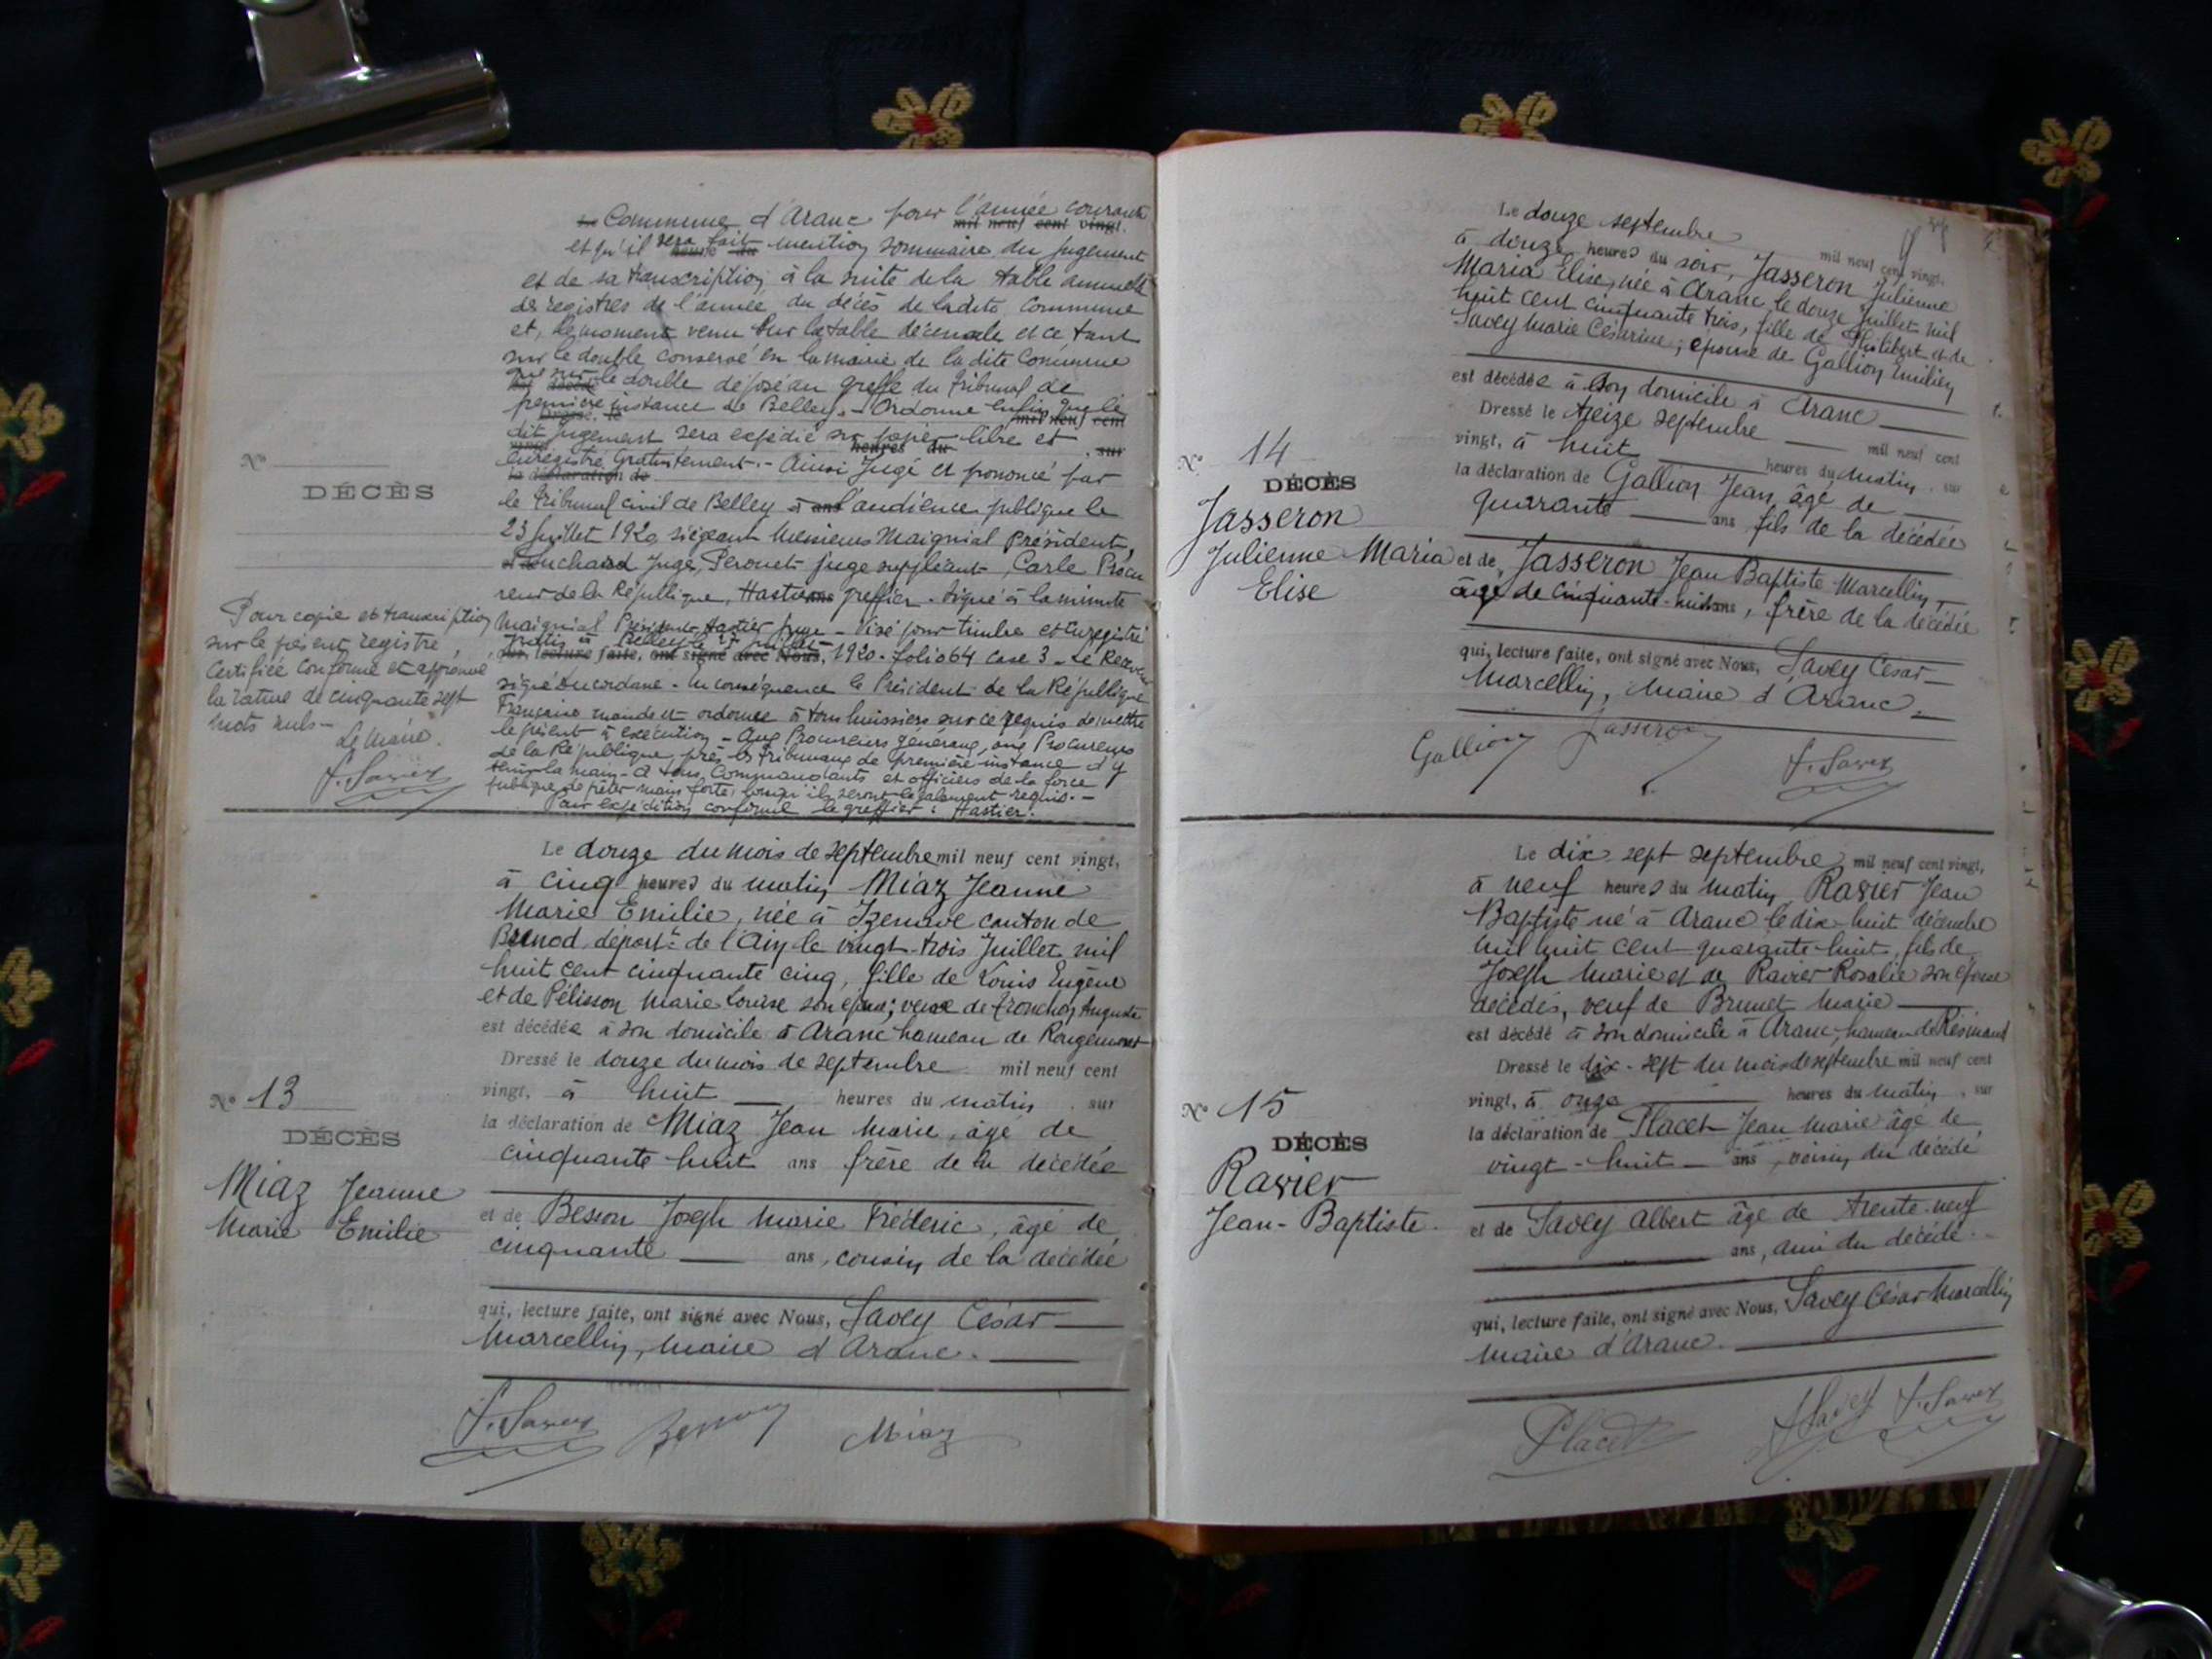 Commune d'Aranc pour l'année courante
mil neuf cent vingt.
et qu'il sera fait mention sommaire du jugement
et de sa transcription à la suite de la table annuelle
des registres de l'année du décès de ladite Commune
et, le moment venu sur la table décennale et ce tant
sur le double conservé en la mairie de la dite Commune
que sur le double déposé au greffe du tribunal de
première instance de Belley. - Ordonne enfin que le
Dressé le mil neuf cent
dit jugement sera expédié sur papier libre et
vingt heures du sur
enregistré gratuitement. - Ainsi Jugé et prononcé par
la déclaration de
le tribunal civil de Belley à l'audience publique le
23 Juillet 1920, siégeant Messieurs Maignial Président,
Juge, Perouet juge suppléant, Carle Procu
reur de la République, Hastier greffier. Signé à la minute
Maignial Président, Hastier - Visé pour timbre et Enregistré
gratis à Belley le 27 juillet
qui, lecture faite, ont signé avec Nous, 1920. folio 64 case 3 - Le Receveur
signé - En conséquence le Président de la République
Française mande et ordonne à tous huissiers sur ce requis de mettre
le présent à exécution - Aux Procureurs généraux, aux Procureurs
de la République près les tribunaux de première instance d'y
tenir la main - à tous Commandants et officiers de la force
publique de prêter main forte, lorsqu'ils seront légalement requis. -
Pour expédition conforme le greffier : Hastier.
No
DÉCÈS
Pour copie et transcription
sur le présent registre,
Certifiée conforme et approuvé
la rature de cinquante sept
mots nuls -
Le Maire.
Le douze du mois de septembre mil neuf cent vingt,
à cinq heures du matin Miaz Jeanne
Marie Emilie, née à Izenave canton de
Brénod départt de l'Ain le vingt-trois Juillet mil
huit cent cinquante cinq, fille de Louis Eugène
et de Pélisson Marie Louise son épouse; veuve de Tronchon Auguste
est décédée à son domicile à Aranc hameau de Rougemont
Dressé le douze du mois de septembre mil neuf cent
vingt, à huit heures du matin, sur
la déclaration de Miaz Jean Marie, âgé de
cinquante-huit ans frère de la décédée
et de Besson Joseph Marie Fréderic, âgé de
cinquante ans, cousin de la décédée
qui, lecture faite, ont signé avec Nous, Savey César
Marcellin, Maire d'Aranc.
No 13
DÉCÈS
Miaz Jeanne
Marie Emilie
Besson
Miaz
Le douze septembre mil neuf cent vingt,
à douze heures du soir, Jasseron Julienne
Maria Elise, née à Aranc le douze Juillet mil
huit cent cinquante trois, fille de Philibert et de
Savey Marie Césarine; épouse de Gallion Emilien
est décédée à son domicile à Aranc
Dressé le treize septembre mil neuf cent
vingt, à huit heures du matin, sur
la déclaration de Gallion Jean, âgé de
quarante ans fils de la décédée
et de Jasseron Jean Baptiste Marcellin,
âgé de cinquante-huit ans, frère de la décédée
qui, lecture faite, ont signé avec Nous, Savey César
Marcellin, Maire d'Aranc.
No 14
DÉCÈS
Jasseron
Julienne Maria
Elise
Gallion
Jasseron
Le dix sept septembre mil neuf cent vingt,
à neuf heures du matin Ravier Jean
Baptiste né à Aranc le dix-huit décembre
mil huit cent quarante-huit, fils de
Joseph Marie et de Ravier Rosalie son épouse
décédés, veuf de Brunet Marie
est décédé à son domicile à Aranc, hameau de Résinand
Dressé le dix-sept du mois de septembre mil neuf cent
vingt, à onze heures du matin, sur
la déclaration de Placet Jean Marie âgé de
vingt-huit ans, voisin du décédé
et de Savey Albert âgé de trente-neuf
ans, ami du décédé.
qui, lecture faite, ont signé avec Nous, Savey César Marcellin
maire d'Aranc.
No 15
DÉCÈS
Ravier
Jean-Baptiste.
Placet
ASavey